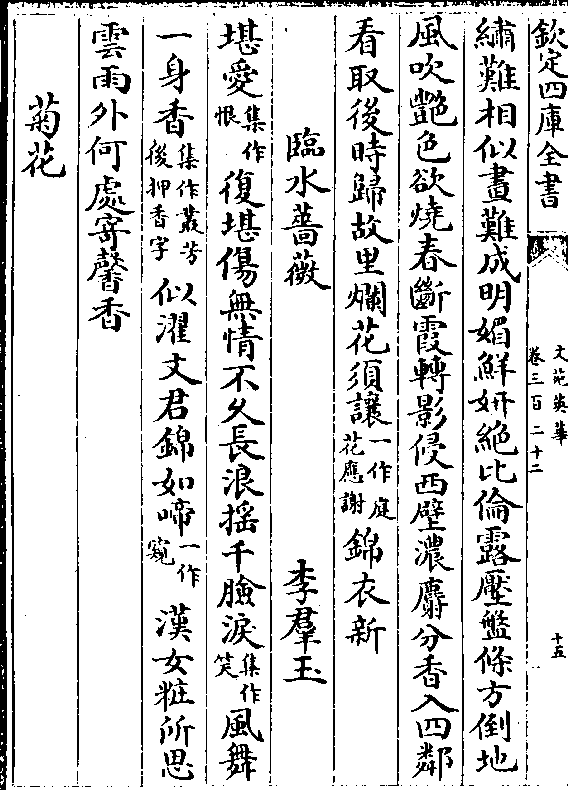 欽定四庫全書
文苑英華
卷三百二十二
十五
繡難相似畫難成明媚鮮妍絶比倫露壓盤條方倒地
風吹艷色欲燒春斷霞轉影侵西壁濃麝分香入四鄰
看取後時歸故里爛花須讓一作庭花應謝錦衣新
臨水薔薇 李羣玉
堪愛集作恨復堪傷無情不久長浪搖千臉淚集作笑風舞
一身香集作叢芳後押香字似濯文君錦如啼一作窺漢女粧所思
雲雨外何處寄馨香
菊花